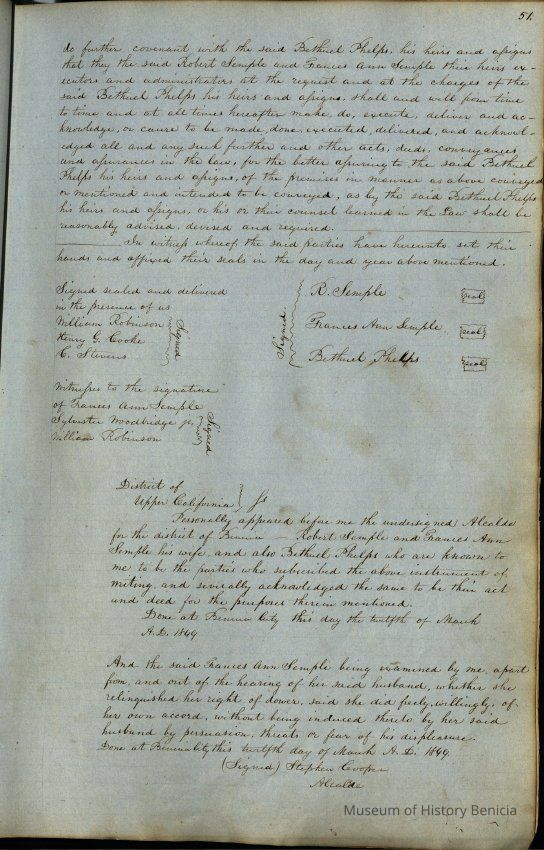 51.
do further covenant with the said Bethuel Phelps, his heirs and assigns
that they the said Robert Semple and Frances Ann Semple their heirs ex-
ecutors and administrators at the request and at the charges of the
said Bethuel Phelps his heirs and assigns, shall and will from time
to time and at all times hereafter make, do, execute, deliver and ac-
knowledge, or cause to be made, done, executed, delivered, and acknowl-
edged all and any such further and other acts, deeds, conveyances
and assurances in the law, for the better assuring to the said Bethuel
Phelps his heirs and assigns, of the premises in manner as above conveyed
or mentioned and intended to be conveyed, as by the said Bethuel Phelps
his heirs and assigns, or his or their counsel learned in the Law shall be
reasonably advised, devised and required.
In witness whereof the said parties have hereunto set their
hands and affixed their seals in the day and year above mentioned.
Signed sealed and delivered
in the presence of us
William Robinson
Henry G. Cooke
C. Stevens
Signed
Signed
R. Semple seal
Frances Ann Semple seal
Bethuel Phelps seal
Witnesses to the signature
of Frances Ann Semple
Sylvester Woodbridge jr
William Robinson
Signed
District of
Upper California } ss
Personally appeared before me the undersigned Alcalde
for the district of Benicia — Robert Semple and Frances Ann
Semple his wife, and also Bethuel Phelps who are known to
me to be the parties who subscribed the above instrument of
writing, and severally acknowledged the same to be their act
and deed for the purposes therein mentioned.
Done at Benicia City this day the twelfth of March
A.D. 1849
And the said Frances Ann Semple being examined by me, apart
from, and out of the hearing of her said husband, whether she
relinquished her right of dower, said she did freely, willingly, of
her own accord, without being induced thereto by her said
husband by persuasion, threats or fear of his displeasure.
Done at Benicia City this twelfth day of March A.D. 1849
(Signed) Stephen Cooper
Alcalde
Museum of History Benicia